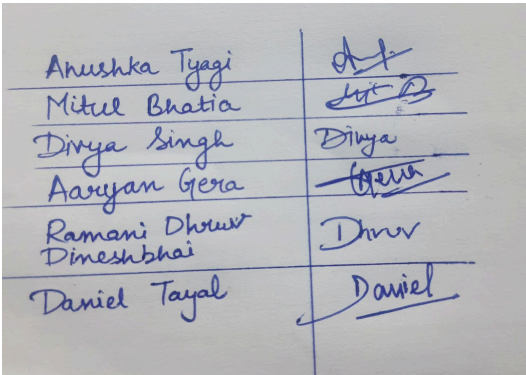 Anushka Tyagi
Mitul Bhatia
Divya Singh Divya
Aaryan Gera Gera
Ramani Dhruv Dhruv
Dineshbhai
Daniel Tayal Daniel